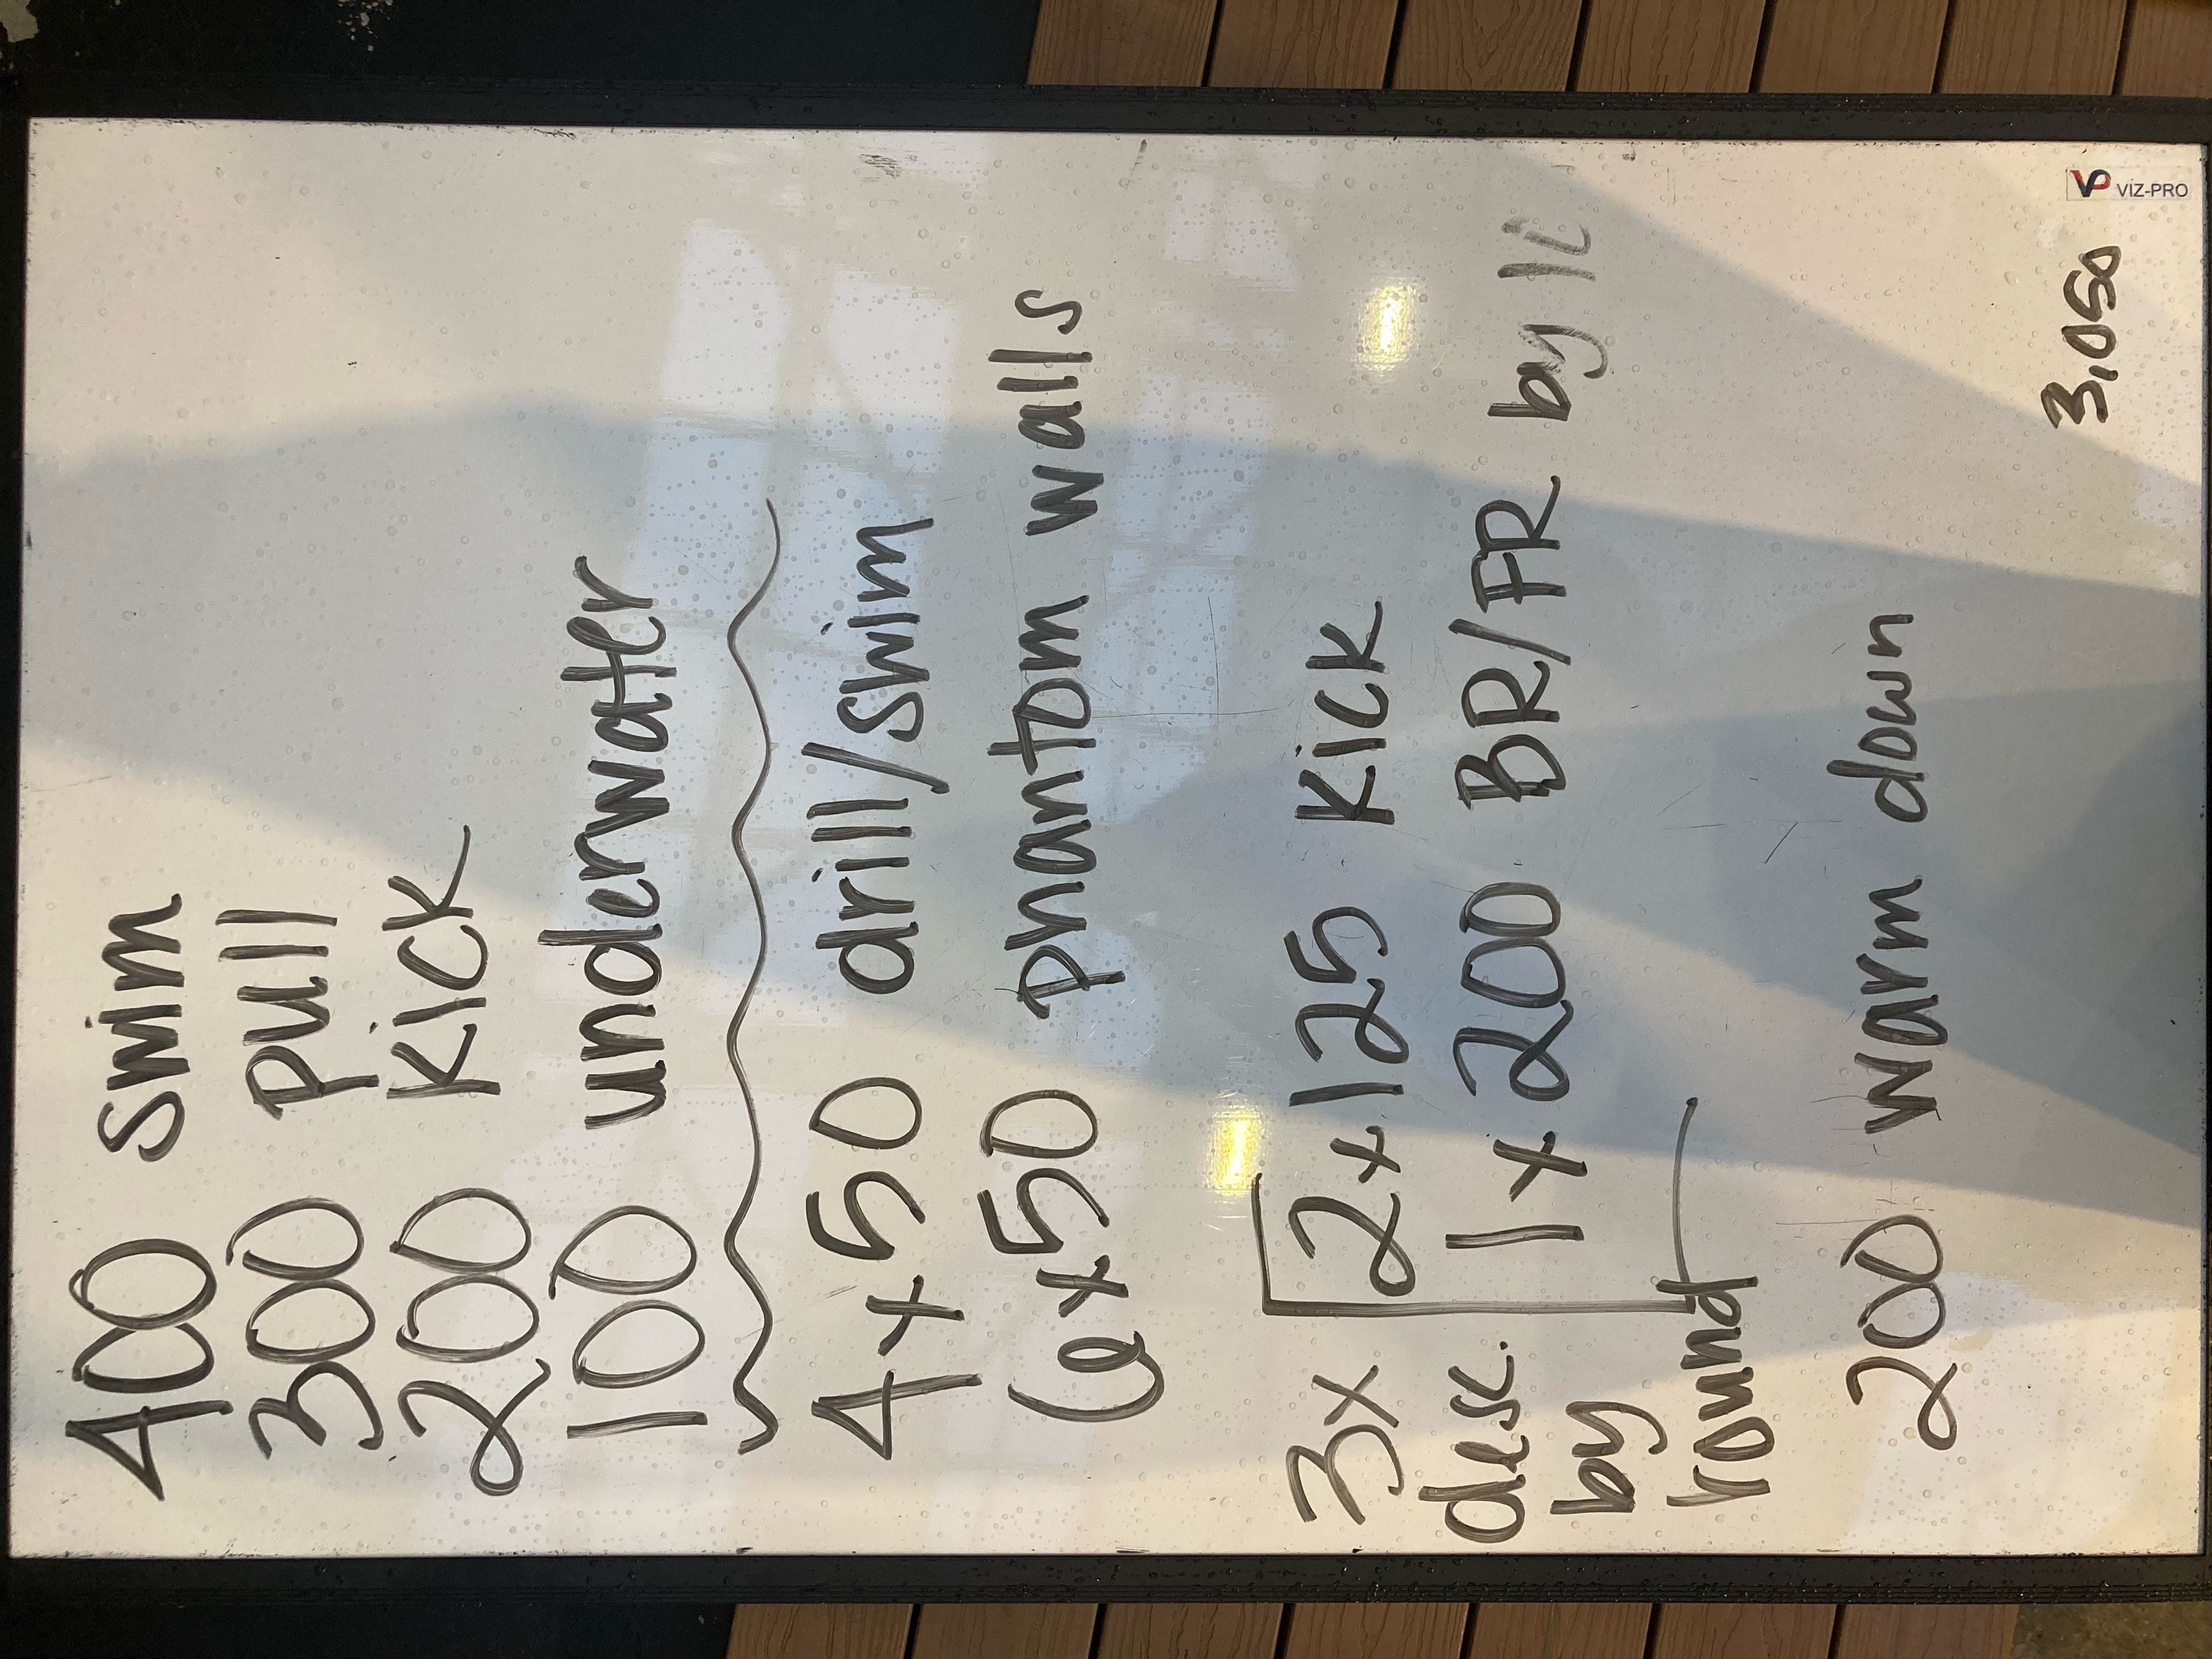 400 swim
300 pull
200 kick
100 underwater
4x50 drill/swim
6x50 phantom walls
3x 2x125 kick
desc. 1x200 BR/FR by
by
round
200 warm down
3,050
VP VIZ-PRO